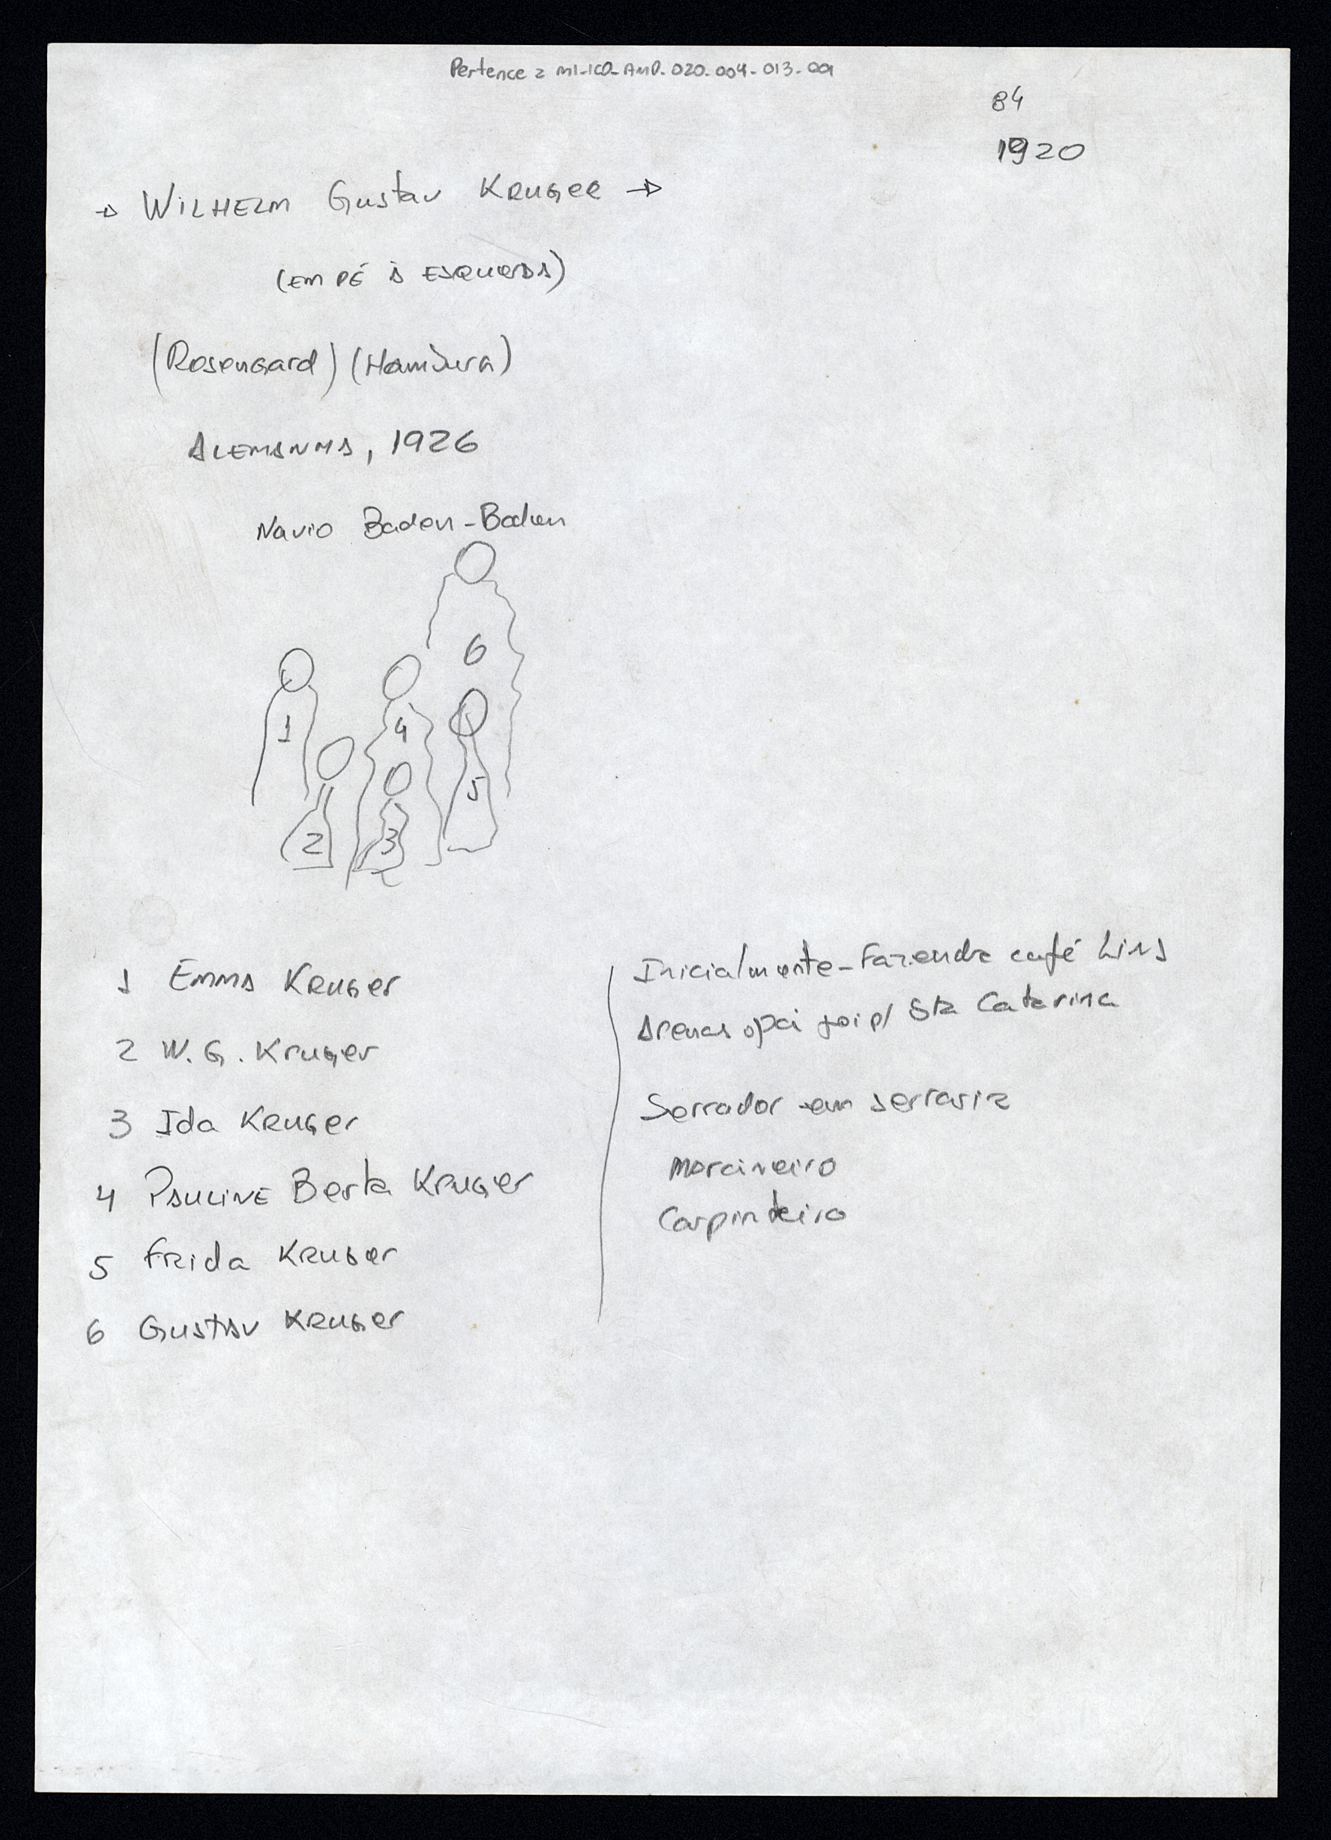 Pertence a MI-ICO-AMP-020-004-013-001
84
1920
→ WILHELM Gustav KRUGER →
(EM PÉ À ESQUERDA)
(Rosengard) (Hamburg)
ALEMANHA, 1926
Navio Baden-Baden
6
1
4
5
2
3
1 EMMA KRUGER
2 W. G. Kruger
3 Ida KRUGER
4 PAULINE Berta KRUGER
5 FRIDA KRUGER
6 GUSTAV KRUGER
Inicialmente - Fazenda café LINS
Apenas o pai foi p/ Sta Catarina
Serrador em serraria
Marcineiro
Carpinteiro